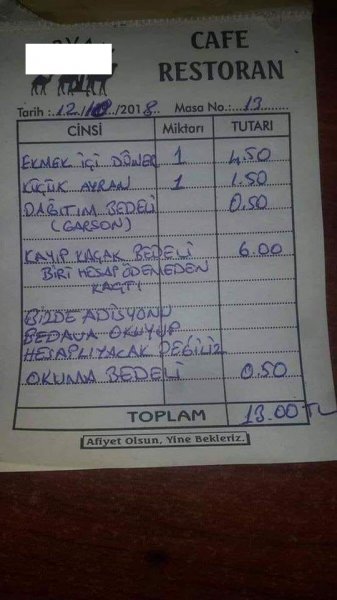 CAFE
RESTORAN
Tarih :..12../10../2018.. Masa No.:...13......
CİNSİ Miktarı TUTARI
EKMEK İÇİ DÖNER 1 4.50
KÜÇÜK AYRAN 1 1.50
DAĞITIM BEDELİ 0.50
(GARSON)
KAYIP KAÇAK BEDELİ 6.00
BİRİ HESAP ÖDEMEDEN
KAÇTI
BİZDE ADİSYONU
BEDAVA OKUYUP
HESAPLIYACAK DEĞİLİZ
OKUMA BEDELİ 0.50
TOPLAM 13.00 TL
Afiyet Olsun, Yine Bekleriz.